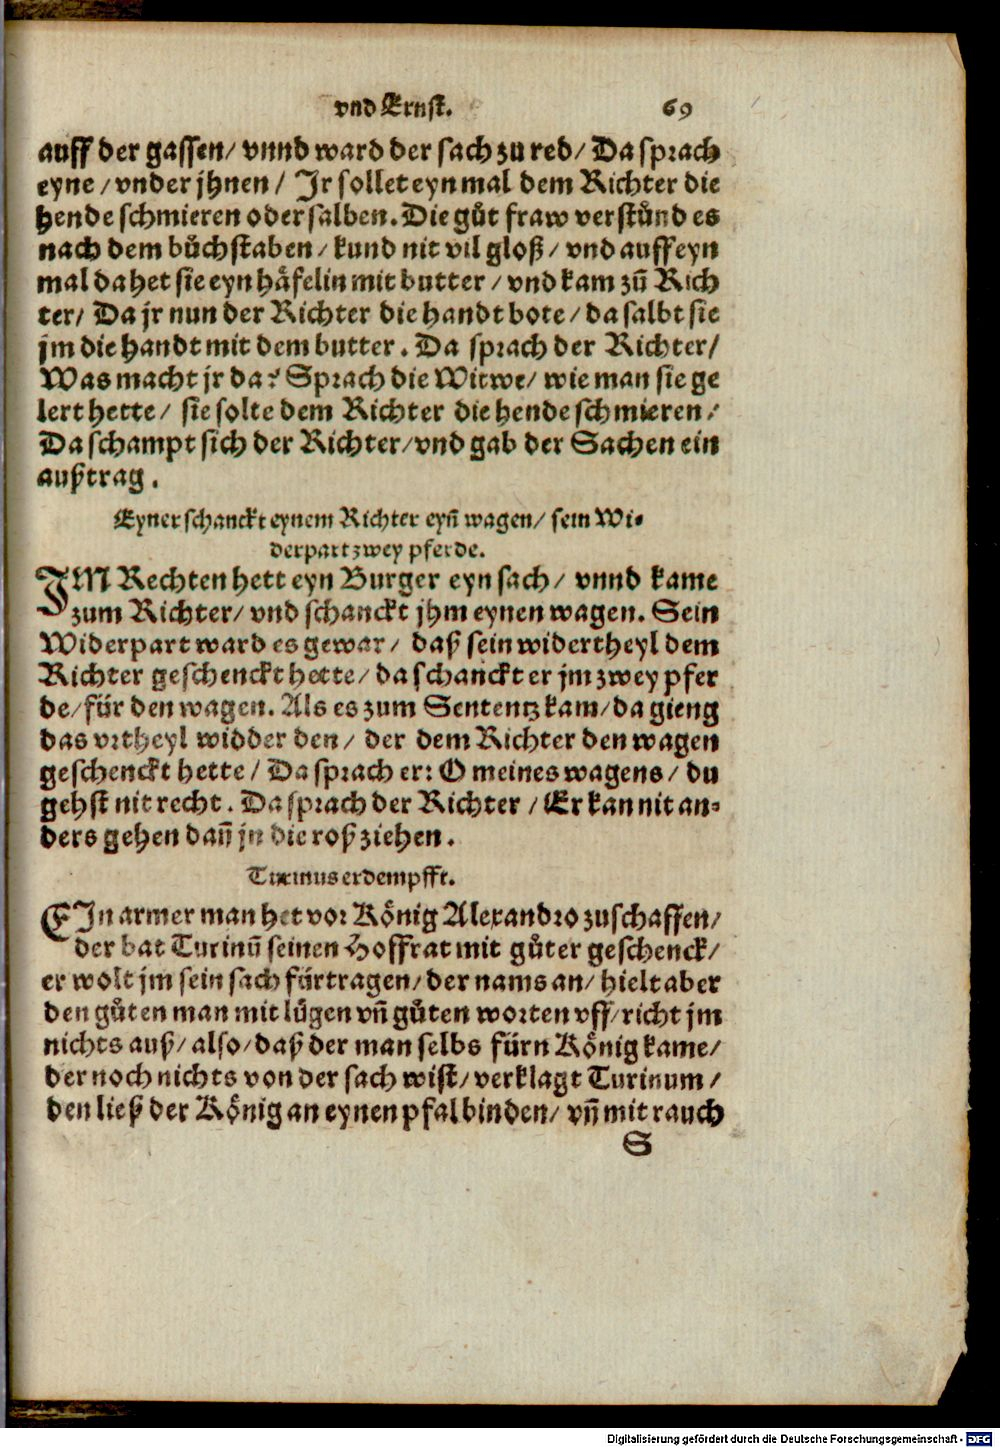 vnd Ernst. 69
auff der gassen/ vnnd ward der sach zu red/ Da sprach
eyne/ vnder jhnen/ Jr sollet eyn mal dem Richter die
hende schmieren oder salben. Die gůt fraw verstůnd es
nach dem bůchstaben/ kund nit vil gloß/ vnd auff eyn
mal da het sie eyn håfelin mit butter/ vnd kam zů Rich
ter/ Da jr nun der Richter die handt bote/ da salbt sie
jm die handt mit dem butter. Da sprach der Richter/
Was macht jr da? Sprach die Witwe/ wie man sie ge
lert hette/ sie solte dem Richter die hende schmieren/
Da schampt sich der Richter/ vnd gab der Sachen ein
außtrag.
Eyner schanckt eynem Richter eyn̄ wagen/ sein Wi⸗
derpart zwey pferde.
JM Rechten hett eyn Burger eyn sach/ vnnd kame
zum Richter/ vnd schanckt jhm eynen wagen. Sein
Widerpart ward es gewar/ daß sein widertheyl dem
Richter geschenckt hette/ da schanckt er jm zwey pfer
de/ für den wagen. Als es zum Sententz kam/ da gieng
das vrtheyl widder den/ der dem Richter den wagen
geschenckt hette/ Da sprach er: O meines wagens/ du
gehst nit recht. Da sprach der Richter/ Er kan nit an⸗
ders gehen dañ jn die roß ziehen.
Turinus erdempfft.
EJn armer man het vor König Alexandro zuschaffen/
der bat Turinū seinen Hoffrat mit gůter geschenck/
er wolt jm sein sach fürtragen/ der nams an/ hielt aber
den gůten man mit lůgen vñ gůten worten vff/ richt jm
nichts auß/ also/ daß der man selbs fürn König kame/
der noch nichts von der sach wist/ verklagt Turinum/
den ließ der König an eynen pfal binden/ vñ mit rauch
S
Digitalisierung gefördert durch die Deutsche Forschungsgemeinschaft - DFG